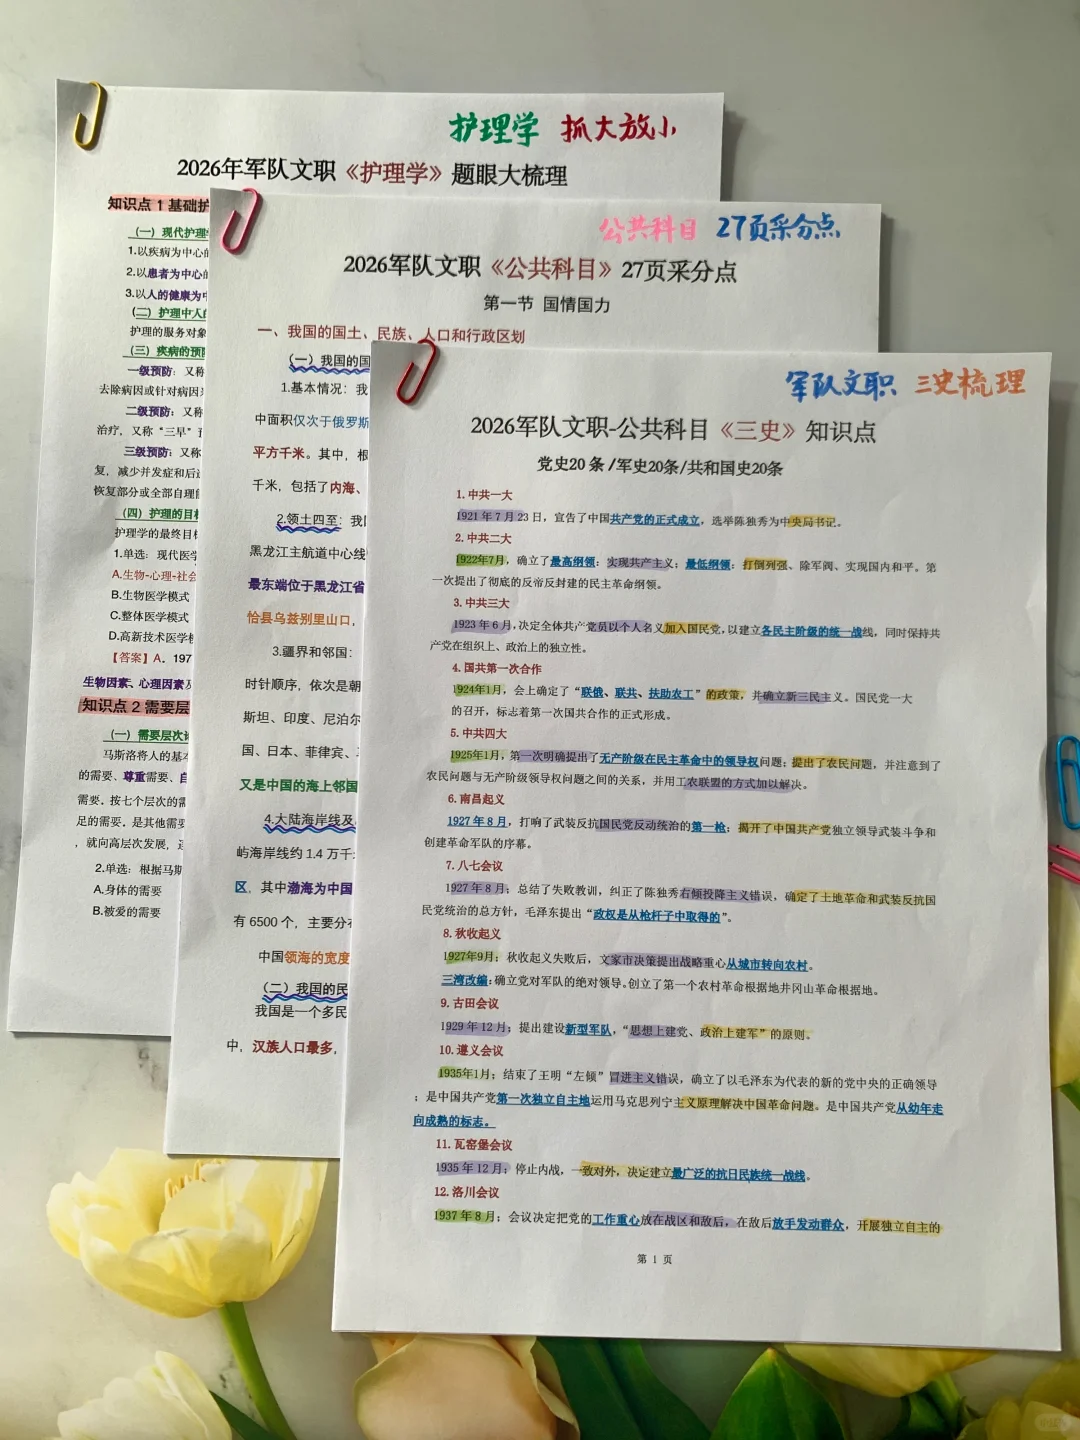 护理学 抓大放小
2026年军队文职《护理学》题眼大梳理
知识点 1 基础护
(一)现代护理学
1.以疾病为中心的
2.以患者为中心的
3.以人的健康为中
(二)护理中人的
护理的服务对象
(三)疾病的预防
一级预防：又称
去除病因或针对病因采
二级预防：又称
治疗，又称“三早”预
三级预防：又称
复，减少并发症和后遗
恢复部分或全部自理能
(四)护理的目标
护理学的最终目标
1.单选：现代医学
A.生物-心理-社会
B.生物医学模式
C.整体医学模式
D.高新技术医学模
【答案】A．197
生物因素、心理因素及
知识点 2 需要层
(一)需要层次论
马斯洛将人的基本
的需要、尊重需要、自
需要．按七个层次的需
足的需要．是其他需要
，就向高层次发展，
2.单选：根据马斯
A.身体的需要
B.被爱的需要
公共科目 27页采分点
2026军队文职《公共科目》27页采分点
第一节 国情国力
一、我国的国土、民族、人口和行政区划
(一)我国的国
1.基本情况：我
中面积仅次于俄罗斯
平方千米。其中，根
千米，包括了内海、
2.领土四至：我
黑龙江主航道中心线
最东端位于黑龙江省
恰县乌兹别里山口，
3.疆界和邻国：
时针顺序，依次是朝
斯坦、印度、尼泊尔
国、日本、菲律宾、
又是中国的海上邻国
4.大陆海岸线及
屿海岸线约 1.4 万千
区．其中渤海为中国
有 6500 个，主要分布
中国领海的宽度
(二)我国的民
我国是一个多民
中，汉族人口最多，
军队文职 三史梳理
2026军队文职-公共科目《三史》知识点
党史20 条 /军史20条/共和国史20条
1. 中共一大
1921 年 7 月 23 日，宣告了中国共产党的正式成立，选举陈独秀为中央局书记。
2. 中共二大
1922年7月，确立了最高纲领：实现共产主义；最低纲领：打倒列强、除军阀、实现国内和平。第
一次提出了彻底的反帝反封建的民主革命纲领。
3. 中共三大
1923 年 6 月，决定全体共产党员以个人名义加入国民党，以建立各民主阶级的统一战线，同时保持共
产党在组织上、政治上的独立性。
4. 国共第一次合作
1924年1月，会上确定了“联俄、联共、扶助农工”的政策，并确立新三民主义。国民党一大
的召开，标志着第一次国共合作的正式形成。
5. 中共四大
1925年1月，第一次明确提出了无产阶级在民主革命中的领导权问题；提出了农民问题，并注意到了
农民问题与无产阶级领导权问题之间的关系，并用工农联盟的方式加以解决。
6. 南昌起义
1927 年 8 月，打响了武装反抗国民党反动统治的第一枪；揭开了中国共产党独立领导武装斗争和
创建革命军队的序幕。
7. 八七会议
1927 年 8 月；总结了失败教训，纠正了陈独秀右倾投降主义错误，确定了土地革命和武装反抗国
民党统治的总方针，毛泽东提出“政权是从枪杆子中取得的”。
8. 秋收起义
1927年9月；秋收起义失败后，文家市决策提出战略重心从城市转向农村。
三湾改编：确立党对军队的绝对领导。创立了第一个农村革命根据地井冈山革命根据地。
9. 古田会议
1929 年 12 月；提出建设新型军队，“思想上建党、政治上建军”的原则。
10. 遵义会议
1935年1月；结束了王明“左倾”冒进主义错误，确立了以毛泽东为代表的新的党中央的正确领导
；是中国共产党第一次独立自主地运用马克思列宁主义原理解决中国革命问题。是中国共产党从幼年走
向成熟的标志。
11. 瓦窑堡会议
1935 年 12 月；停止内战，一致对外，决定建立最广泛的抗日民族统一战线。
12. 洛川会议
1937 年 8 月；会议决定把党的工作重心放在战区和敌后，在敌后放手发动群众，开展独立自主的
第 1 页